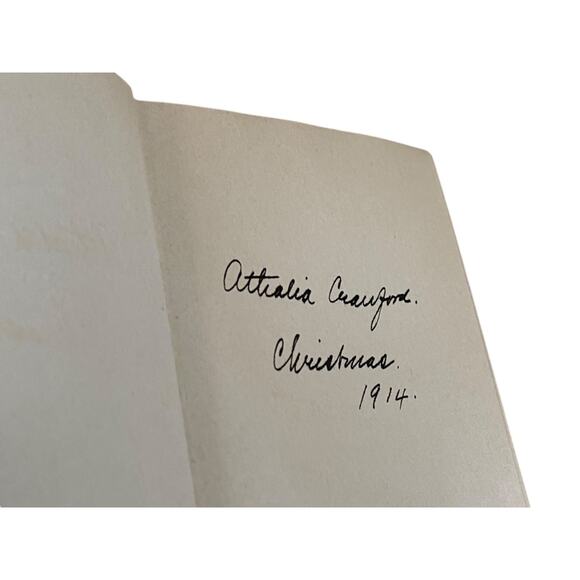 Athalia Crawford.
Christmas.
1914.